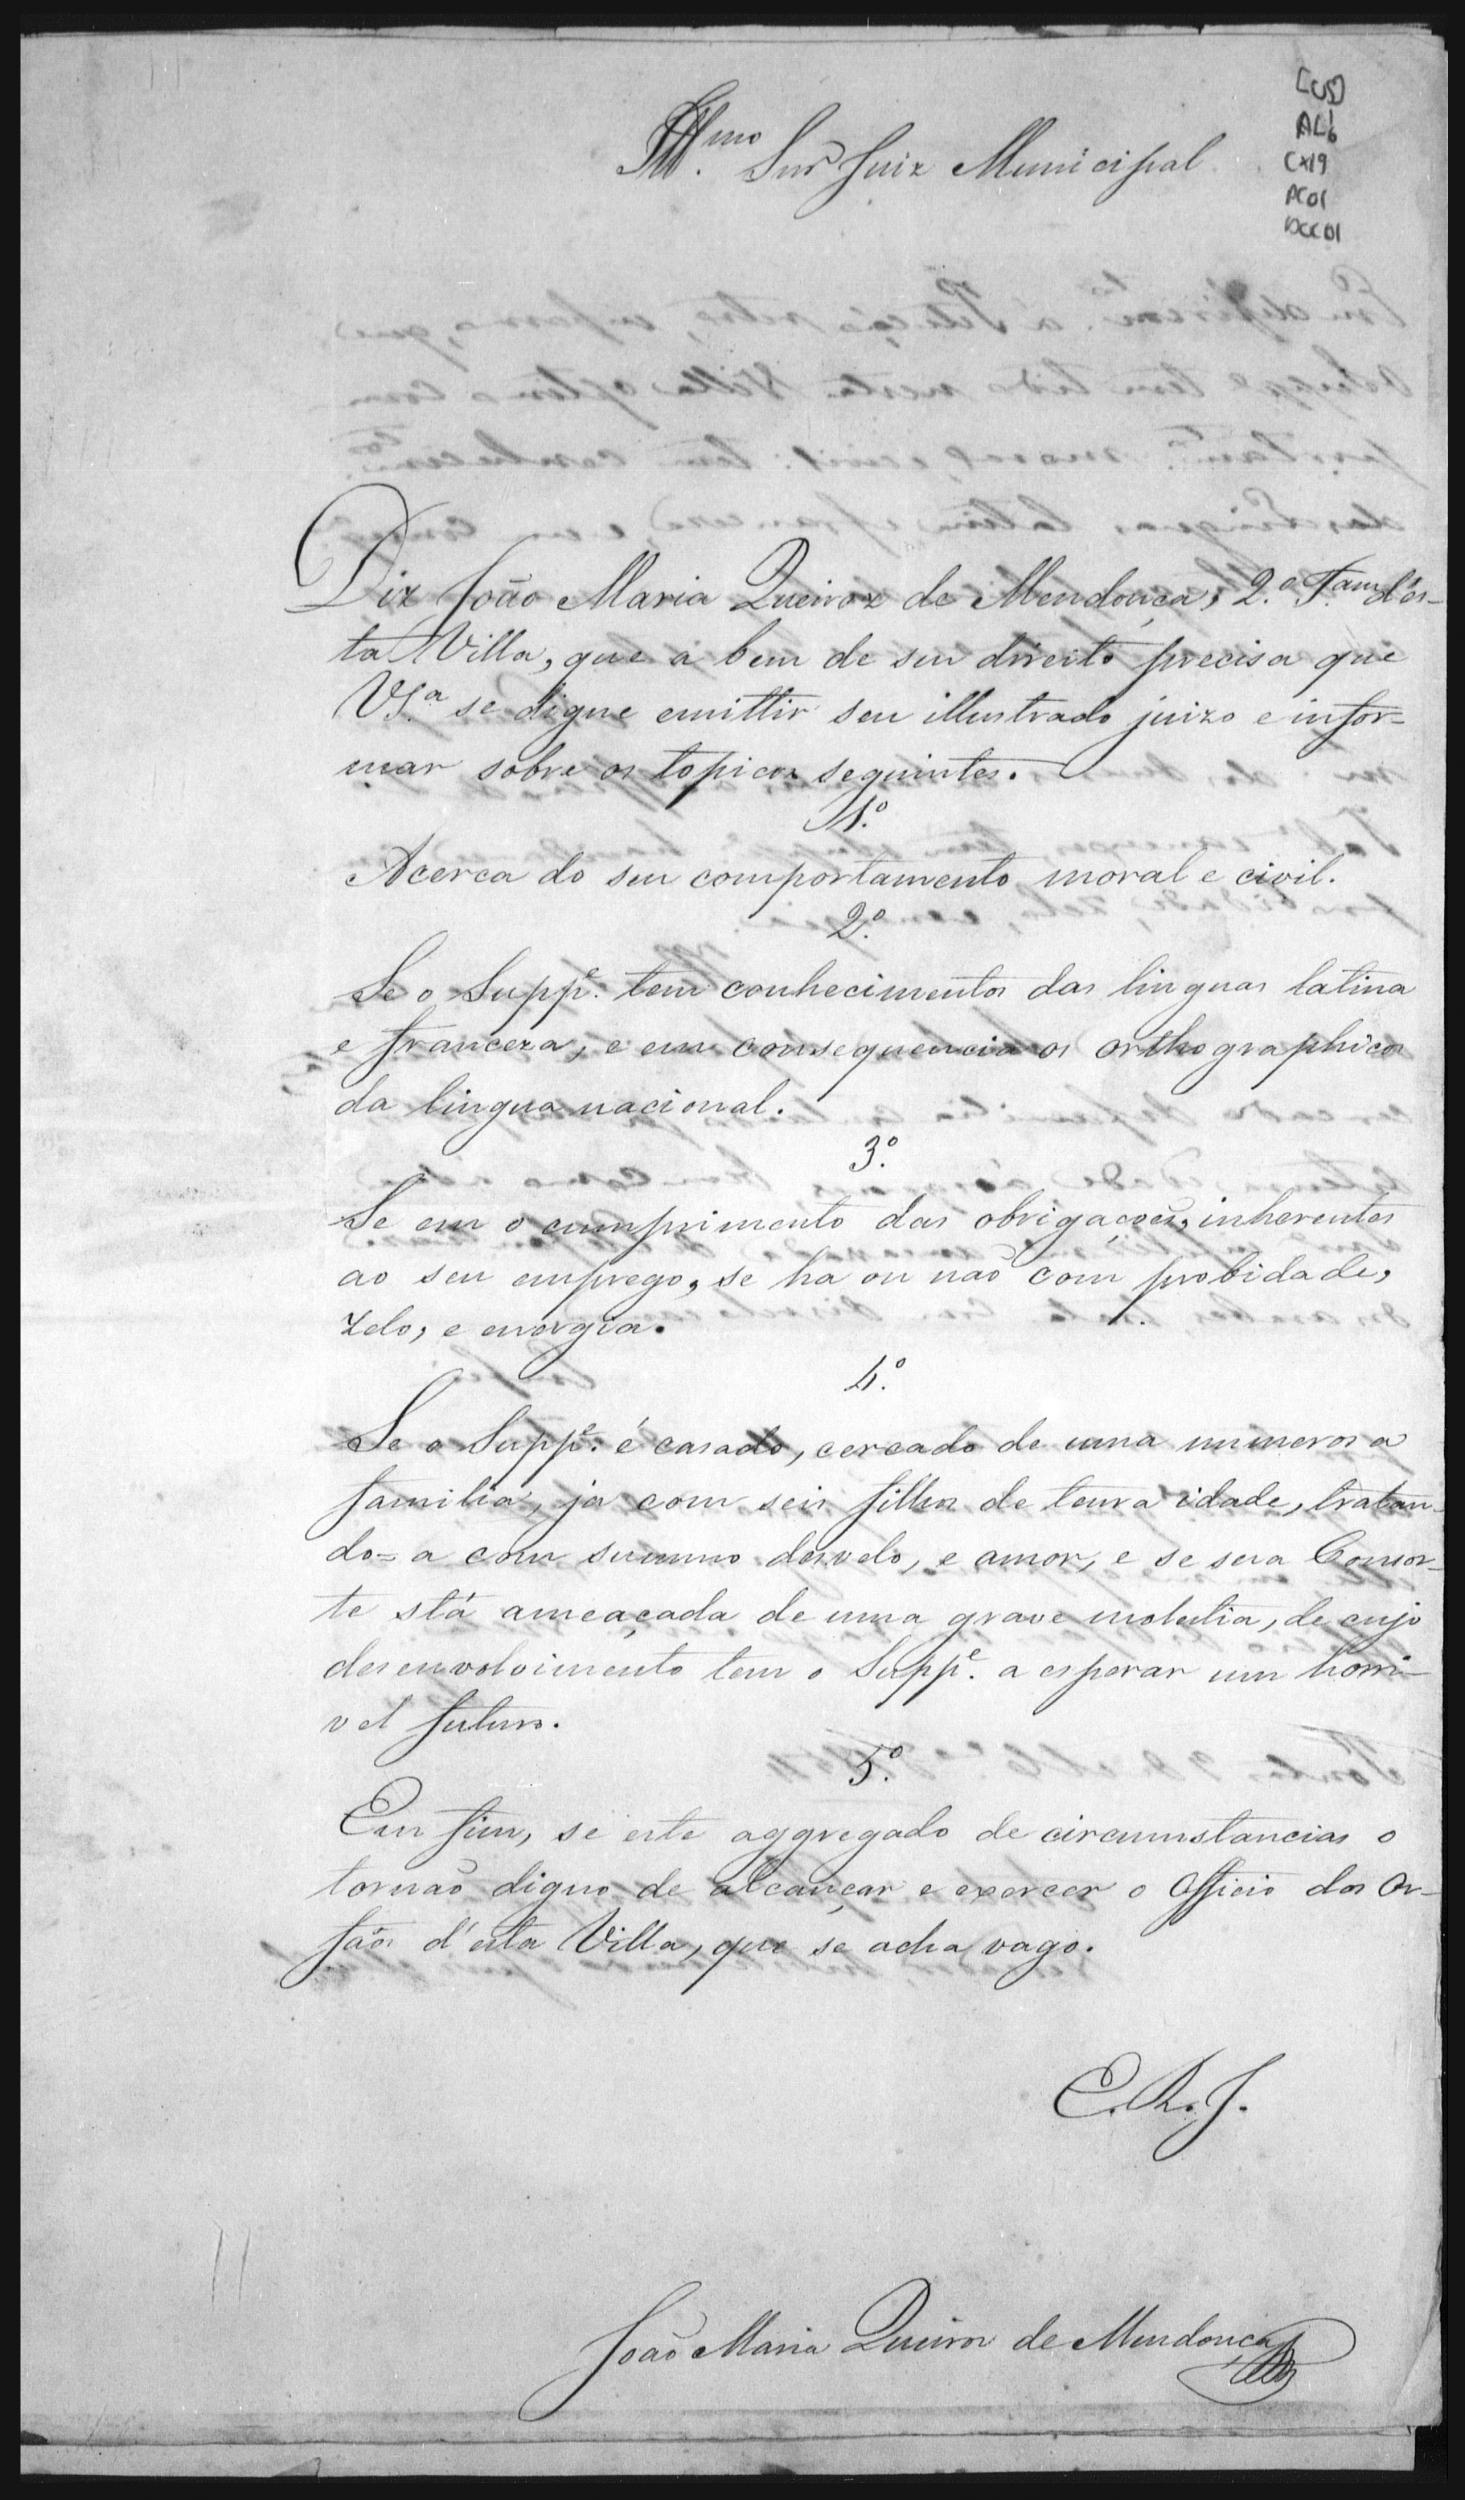 [CS]
AL6
CX19
AC01
DCC01
Ill.mo Snr Juiz Municipal
Diz João Maria Queiroz de Mendonça, 2.o T.am d'es-
ta Villa, que a bem de seu direito precisa que
VS.a se digne emittir seu illustrado juizo e infor-
mar sobre os topicos seguintes.
1.o
Acerca do seu comportamento moral e civil.
2.o
Se o Supp.e tem conhecimentos das linguas latina
e franceza, e em consequencia os orthographicos
da lingua nacional.
3.o
Se em o cumprimento das obrigações, inherentes
ao seu emprego, se ha ou não com probidade,
zelo, e energia.
4.o
Se o Supp.e é casado, cercado de uma numerosa
familia, ja com seis filhos de tenra idade, tratan-
do=a com summo desvelo, e amor, e se sua Consor-
te stá ameaçada de uma grave molestia, de cujo
desenvolvimento tem o Supp.e a esperar um horri-
vel futuro.
5.o
Em fim, se este aggregado de circumstancias o
tornão digno de alcançar e exercer o Officio dos Or-
fãos d'esta Villa, que se acha vago.
E. R. J.
João Maria Queiroz de Mendonça